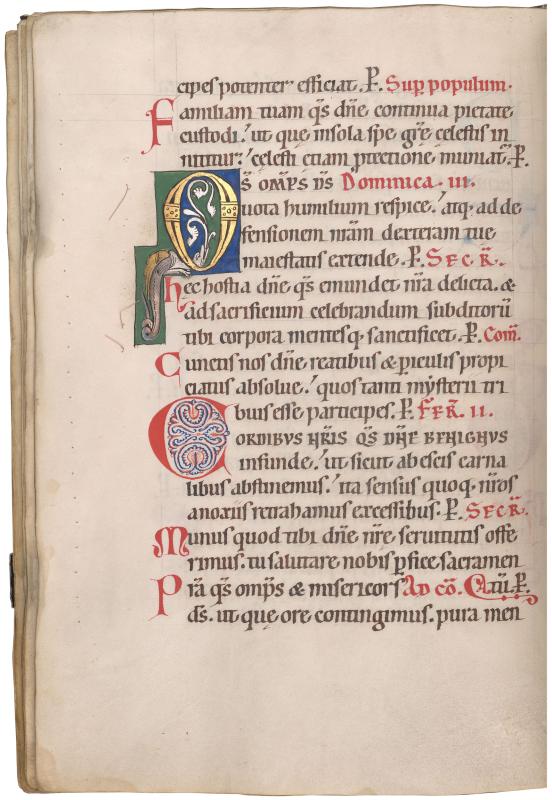 cipes potenter efficiat. P̄. Sup populum.
Familiam tuam q̄s dn̄e continua pietate
custodi. ut que in sola spe gr̄e celestis in
nititur: celesti etiam ꝓtectione muniat̄. P̄.
Q̄S OMP̄S D̄S Dominica. iii.
uota humilium respice. atq. ad de
fensionem nr̄am dexteram tue
maiestatis extende. P̄. SECR̄.
Hec hostia dn̄e q̄s emundet nr̄a delicta. &
ad sacrificium celebrandum subditorū
tibi corpora mentesq. sanctificet. P̄. Com̄.
Cunctis nos dn̄e reatibus & ꝑiculis propi
ciatus absolue. quos tanti mysterii tri
buis esse participes. P̄. FER̄. II.
CORDIBVS NR̄IS Q̄S DN̄E BENIGNVS
infunde. ut sicut ab escis carna
libus abstinemus. ita sensus quoq. nr̄os
a noxiis retrahamus excessibus. P̄. SECR̄.
Munus quod tibi dn̄e nr̄e seruitutis offe
rimus. tu salutare nobis ꝑfice sacramen
Pr̄a q̄s omp̄s & misericors AD CŌ. tū. P̄.
d̄s. ut que ore contingimus. pura men